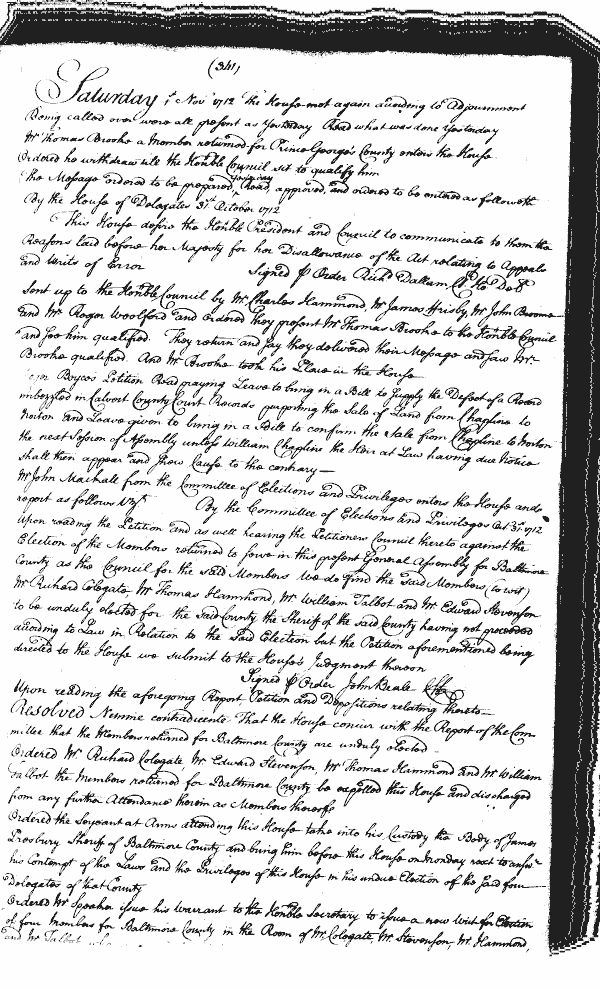 (341)
Saturday 1st Novr 1712 The House met again according to Adjournment
Being called over were all present as Yesterday Read what was done Yesterday
Mr Thomas Brooke a member returned for Prince George's County enters the House
Ordered he withdraw till the Honble Council sit to qualify him
The Message ordered to be prepared, Yesterday Read, approved, and ordered to be entered as followeth
By the House of Delegates 31st October 1712
This House desire the Honble President and Council to communicate to them the
Reasons laid before her Majesty for her Disallowance of the Act relating to Appeals
and Writs of Error Signed p Order Richd Dallam Cl Ho Del
Sent up to the Honble Council by Mr Charles Hammond, Mr James Frisby, Mr John Broome
and Mr Roger Woolford and ordered they present Mr Thomas Brooke to the Honble Council
and see him qualified. They return and say they delivered their Message and saw Mr
Brooke qualified. And Mr Brooke took his Place in the House
Boyce's Petition Read praying Leave to bring in a Bill to supply the Defect of a Record
imbezzled in Calvert County Court Records purporting the Sale of Land from Chapline to
Norton and Leave given to bring in a Bill to confirm the Sale from Chapline to Norton
the next Session of Assembly unless William Chapline the Heir at Law having due Notice
shall then appear and shew Cause to the contrary
Mr John Mackall from the Committee of Elections and Privileges enters the House and
report as follows Vizt By the Committee of Elections and Privileges Oct 31st 1712
Upon reading the Petition and as well hearing the Petitioners Council thereto against the
Election of the Members returned to serve in this present General Assembly for Baltimore
County as the Council for the said Members We do find the said Members (to wit)
Mr Richard Colegate Mr Thomas Hammond, Mr William Talbot and Mr Edward Stevenson
to be unduly elected for the said County the Sheriff of the said County having not proceeded
according to Law in Relation to the said Election but the Petition aforementioned being
directed to the House we submit to the House's Judgment thereon
Signed p Order John Beale Clk
Upon reading the aforegoing Report Petition and Depositions relating thereto
Resolved Nemine contradicente That the House concur with the Report of the Com
mittee that the Members returned for Baltimore County are unduly elected
Ordered Mr Richard Colegate Mr Edward Stevenson, Mr Thomas Hammond and Mr William
Talbot the Members returned for Baltimore County be expelled this House and discharged
from any further Attendance herein as Members thereof
Ordered the Serjeant at Arms attending this House take into his Custody the Body of James
Presbury Sheriff of Baltimore County and bring him before this House on Monday next to answr
his Contempt of the Laws and the Privileges of this House in his undue Election of the said four
Delegates of that County
Ordered Mr Speaker issue his Warrant to the Honble Secretary to issue a new Writ for Election
of four Members for Baltimore County in the Room of Mr Colegate, Mr Stevenson, Mr Hammond,
and Mr Talbot